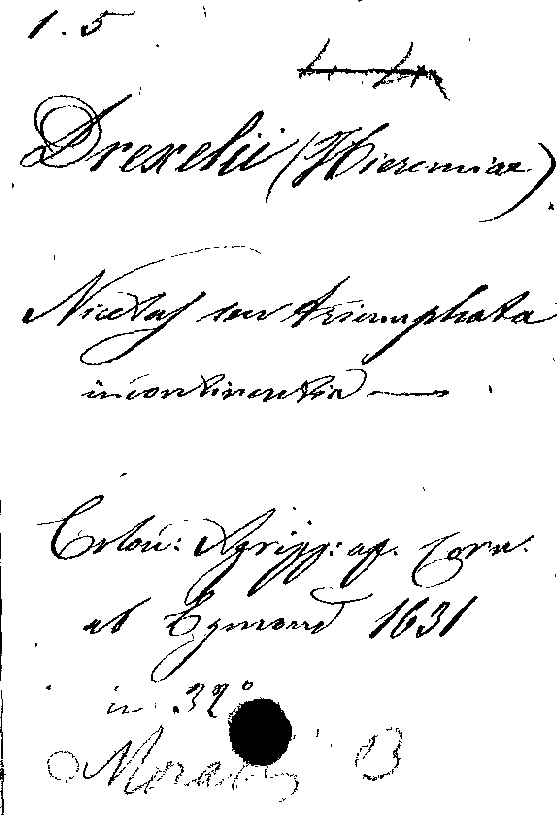 1.5
Drexelii (Hieremiae)
Nicetas seu triumphata
incontinentia —
Colon: Agripp: ap. Corn.
ab Egmond 1631
in 32°
B